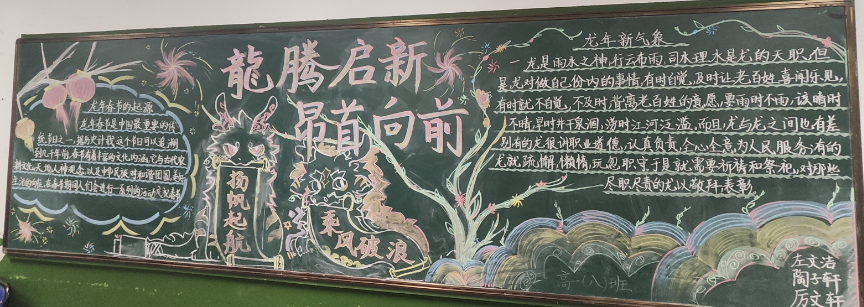 龍腾启新
昂首向前
龙年春节的起源
龙年春节是中国最重要的传
统节日之一,据历史计载这个节日可以追溯
到几千年前,春节有着丰富的文化内涵,它与古代农
扬帆起航
乘风破浪
龙年新气象
龙是雨水之神,行云布雨,司水理水是龙的天职,但
是龙对做自己份内的事情,有时自觉,及时让老百姓喜闻乐见,
有时就不自觉,不及时,背离老百姓的意愿,要雨时不雨,该晴时
不晴,旱时井干泉涸,涝时江河泛滥,而且,龙与龙之间也有差
别有的龙很讲职业道德,认真负责,全心全意为人民服务;有的
龙就疏懒,懒惰,玩忽职守于是就需要祈祷和祭祀,对那些
尽职尽责的龙以敬拜表彰
高一(八)班
左文洁
陶子轩
厉文轩